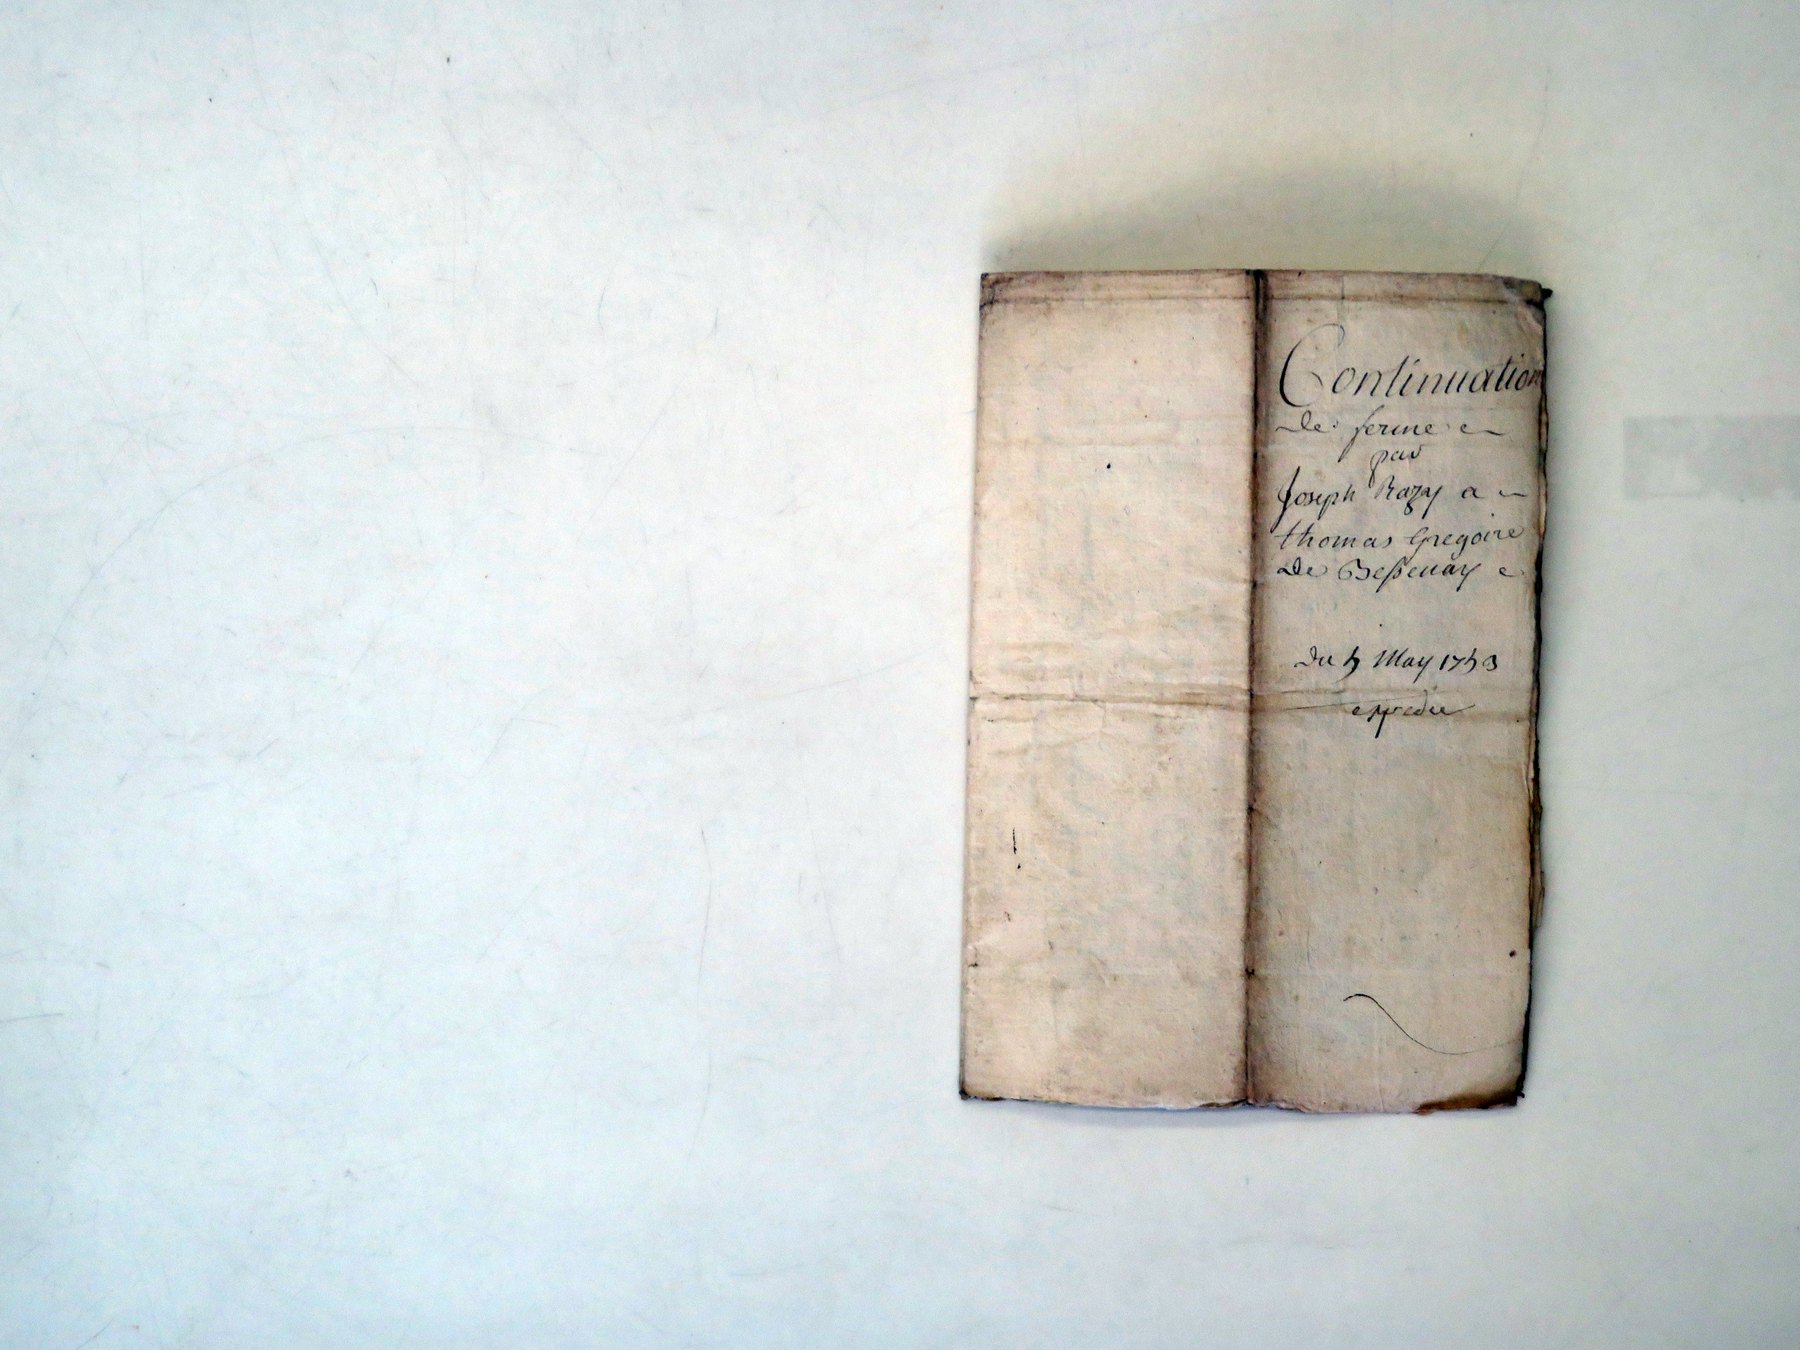 Continuation
de ferme
par
Joseph Razy a
thomas Gregoire
de Bessenay
du 5 May 1753
expedie